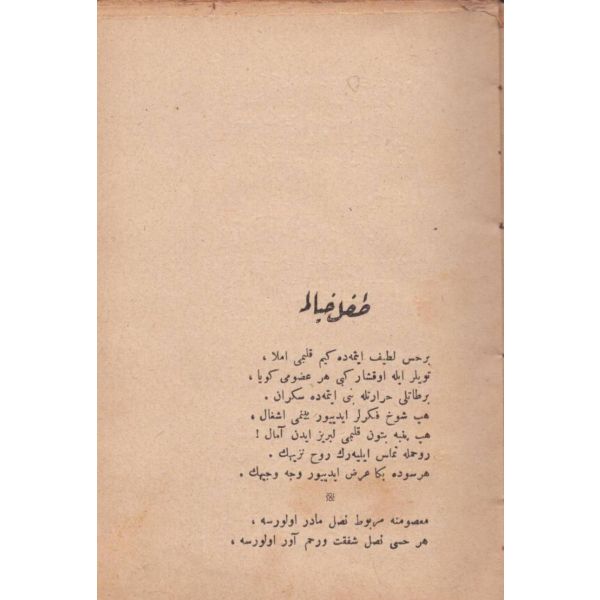 طفل خيالم
برحس لطيف ايتمه‌ده كيم قلبمى املا ،
تويلر ايله اوقشار كبى هر عضومى كويا ،
برطاتلى حرارتله بنى ايتمه‌ده سكران .
هپ شوخ فكرلر ايدييور بينمى اشغال ،
هپ پنبه بتون قلبمى لبريز ايدن آمال !
روحمله تماس ايليه‌رك روح نزيهك .
هرسوده بكا عرض ايدييور وجه وجيهك .
معصومنه مربوط نصل مادر اولورسه ،
هر حسى نصل شفقت ورحم آور اولورسه ،